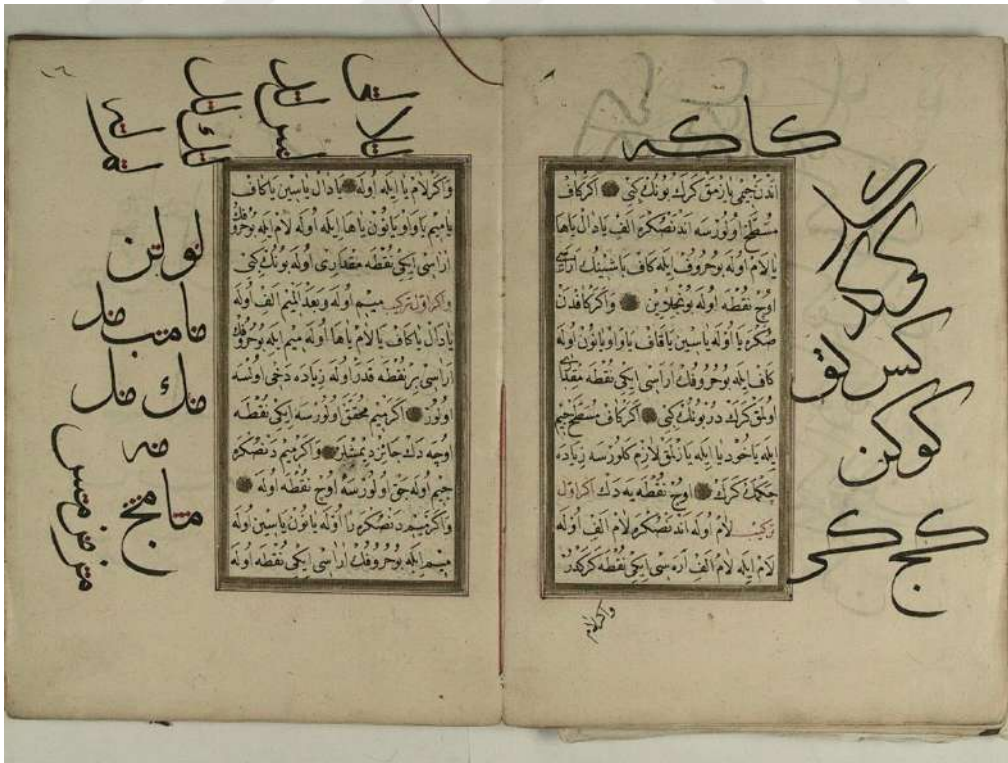 كا كه
اندن جيمى يازمق كرك بونك كبى اكر كاف
مسطح اولورسه اندنصكره الف يا دال يا ها
يا لام اوله بو حروف ايله كاف باشينك اراسى
اوج نقطه اوله بونجلاين واكر كافدن
صكره يا اوله يا سين يا قاف يا واو يا نون اوله
كاف ايله بو حروفك اراسى ايكى نقطه مقدارى
اولمق كرك در بونك كبى اكر كاف مسطح جيم
ايله ياخود يا ايله يازلمق لازم كلورسه زياده
چكمك كرك اوج نقطه يه دك اكر اول
تركيب لام اوله اندنصكره لام الف اوله
لام ايله لام الف اره سى ايكى نقطه كركدر
كد
كس لق
كو كن
كج كر
واكر لام
١٦
واكر لام يا ايله اوله يا دال يا سين يا كاف
يا ميم يا واو يا نون يا ها ايله اوله لام ايله بو حروفك
اراسى ايكى نقطه مقدارى اوله بونك كبى
واكر اول تركيب ميم اوله وبعد الميم الف اوله
يا دال يا كاف يا لام يا ها اوله ميم ايله بو حروفك
اراسى بر نقطه قدر اوله زياده دخى اولسه
اولور اكر ميم محقق اولورسه ايكى نقطه
اوچه دك جائزدر ديمشلر واكر ميم دنصكره
جيم اوله حق اولورسه اوج نقطه اوله
واكر ميم دنصكره را اوله يا نون يا سين اوله
ميم ايله بو حروفك اراسى ايكى نقطه اوله
لو لن
ما مب مد
مك مل
مه
ما مج
مر مس